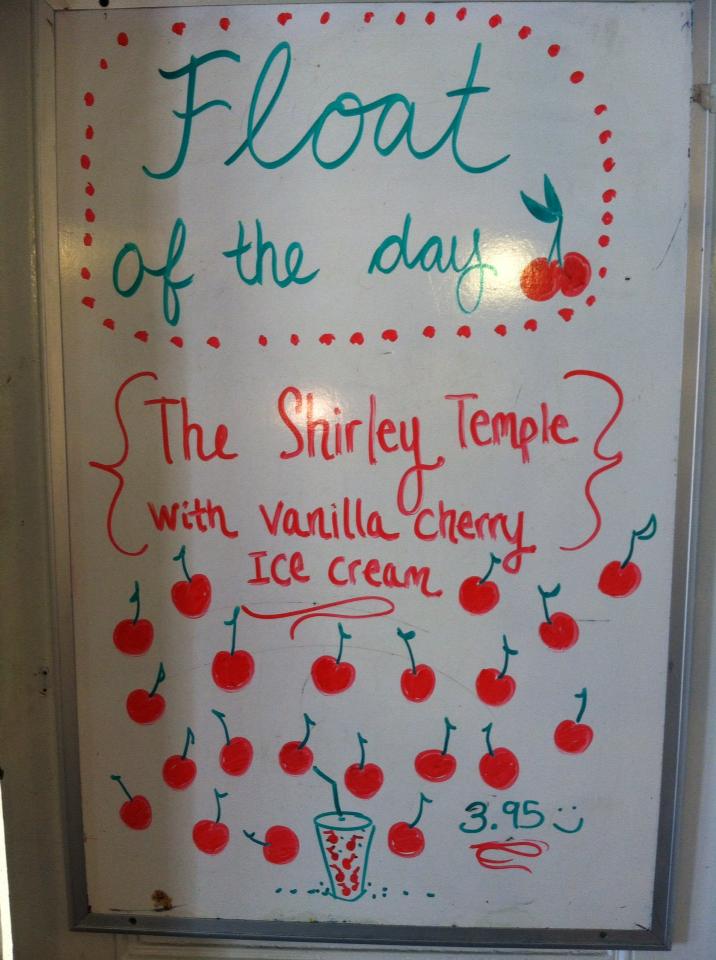 Float
of the day
The Shirley Temple
with vanilla cherry
Ice cream
3.95